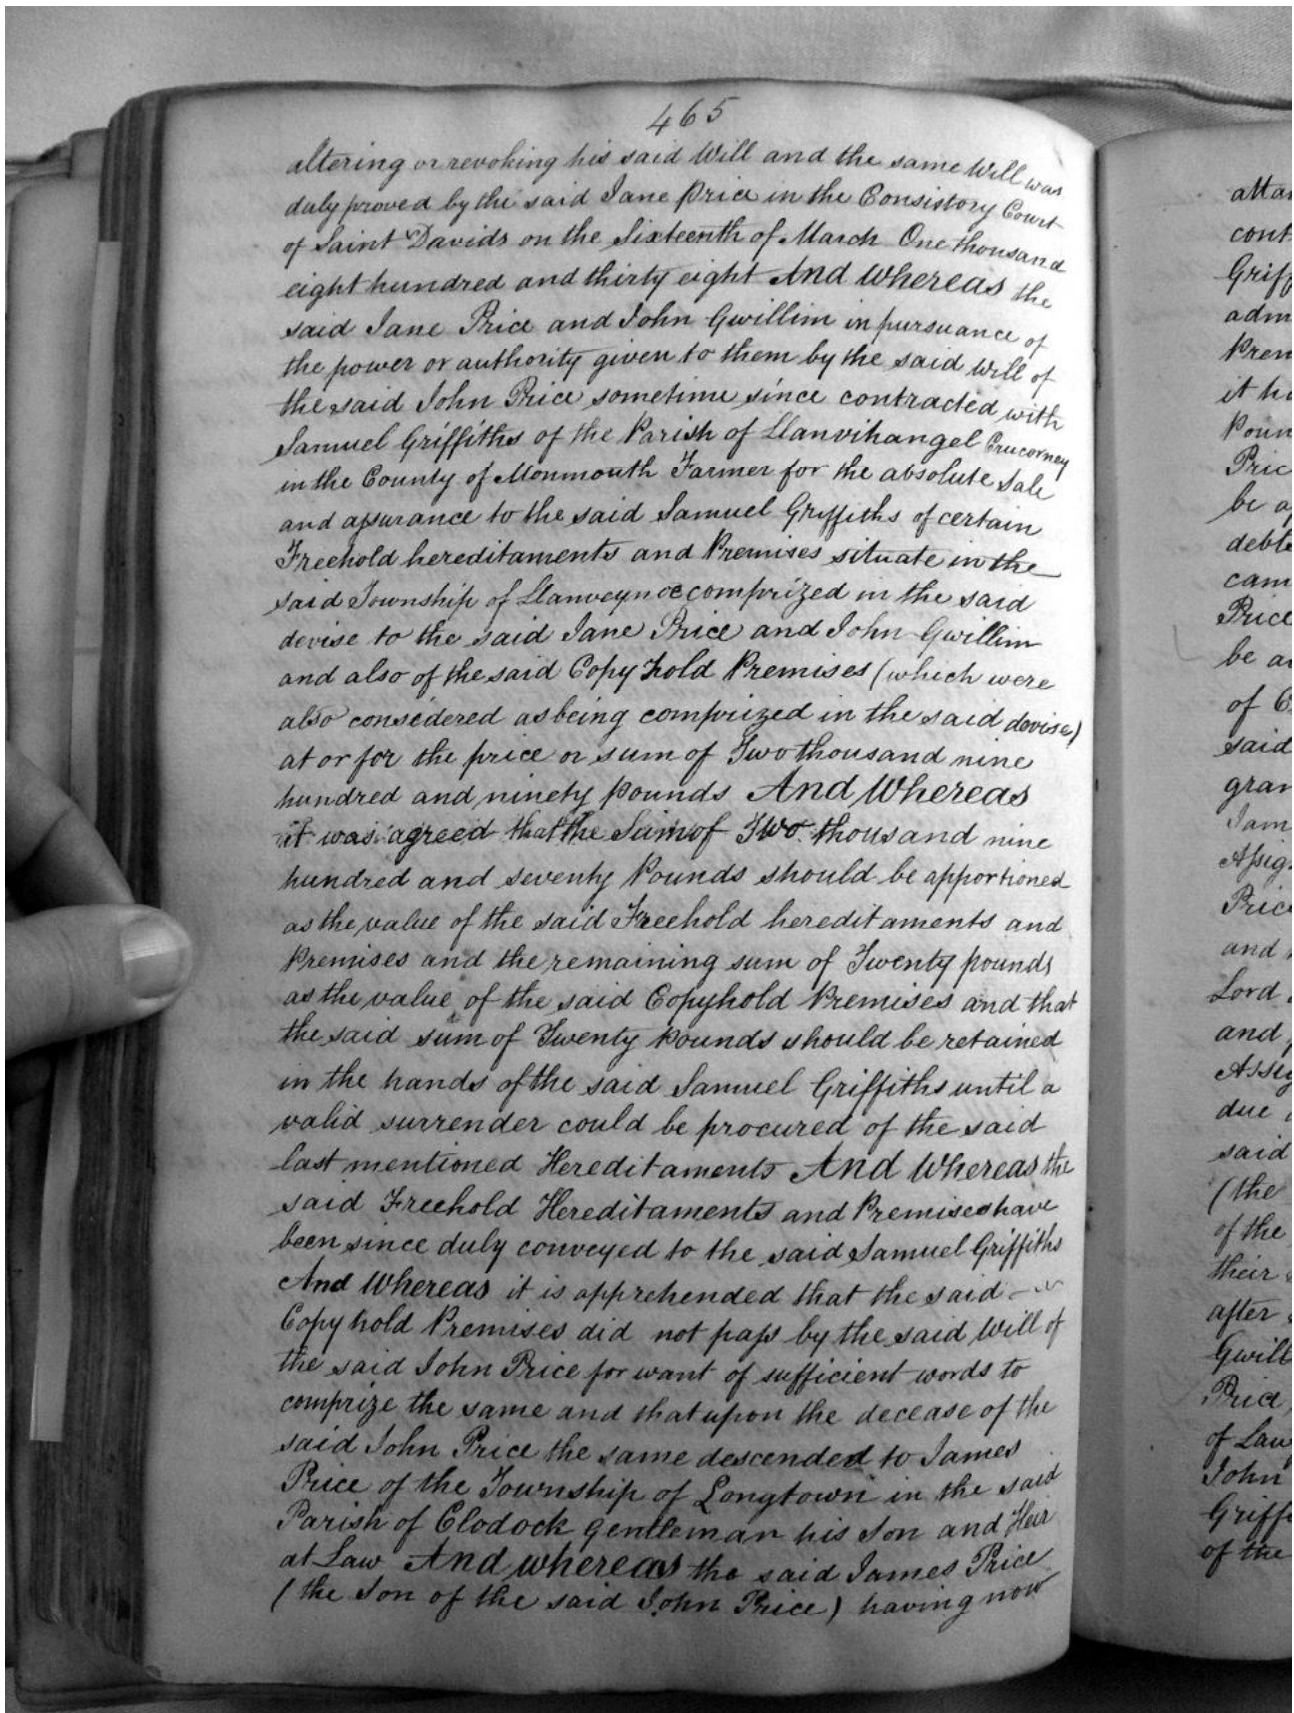 465
altering or revoking his said Will and the same Will was
duly proved by the said Jane Price in the Consistory Court
of Saint Davids on the Sixteenth of March One thousand
eight hundred and thirty eight And Whereas the
said Jane Price and John Gwillim in pursuance of
the power or authority given to them by the said Will of
the said John Price sometime since contracted with
Samuel Griffiths of the Parish of Llanvihangel Crucorney
in the County of Monmouth Farmer for the absolute Sale
and assurance to the said Samuel Griffiths of certain
Freehold hereditaments and Premises situate in the
said Township of Llanveynoe comprized in the said
devise to the said Jane Price and John Gwillim
and also of the said Copy hold Premises (which were
also considered as being comprized in the said devise)
at or for the price or sum of Two thousand nine
hundred and ninety pounds And Whereas
it was agreed that the Sum of Two thousand nine
hundred and seventy Pounds should be apportioned
as the value of the said Freehold hereditaments and
Premises and the remaining sum of Twenty pounds
as the value of the said Copyhold Premises and that
the said sum of Twenty Pounds should be retained
in the hands of the said Samuel Griffiths until a
valid surrender could be procured of the said
last mentioned Hereditaments And Whereas the
said Freehold Hereditaments and Premises have
been since duly conveyed to the said Samuel Griffiths
And Whereas it is apprehended that the said
Copy hold Premises did not pass by the said Will of
the said John Price for want of sufficient words to
comprize the same and that upon the decease of the
said John Price the same descended to James
Price of the Township of Longtown in the said
Parish of Clodock Gentleman his Son and Heir
at Law And whereas the said James Price
(the Son of the said John Price) having now
cont
Griff
adm
Prem
it ha
Poun
Pric
be a
debts
cam
Price
be a
of C
said
gran
Jam
Assig
Price
and
Lord
and
Assig
due
said
(the
of the
their
after
Gwill
Price
of Law
John
Griff
of the